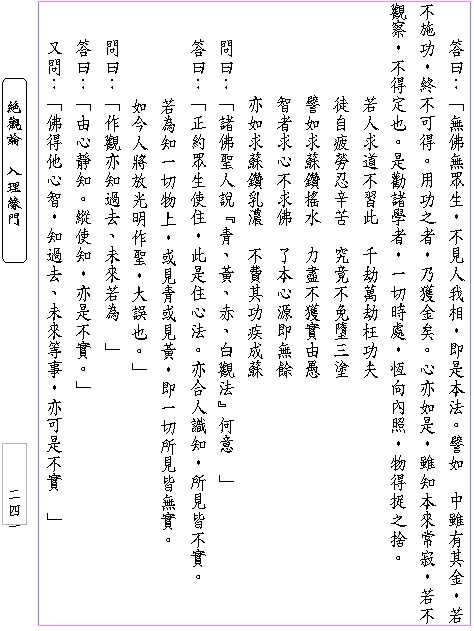 答曰：「無佛無眾生，不見人我相，即是本法。譬如　中雖有其金，若
不施功，終不可得。用功之者，乃獲金矣。心亦如是，雖知本來常寂，若不
觀察，不得定也。是勸諸學者，一切時處，恆向內照，物得捉之捨。
若人求道不習此　千劫萬劫枉功夫
徒自疲勞忍辛苦　究竟不免墮三塗
譬如求蘇鑽搖水　力盡不獲實由愚
智者求心不求佛　了本心源即無餘
亦如求蘇鑽乳濃　不費其功疾成蘇
問曰：「諸佛聖人說『青、黃、赤、白觀法』何意　」
答曰：「正約眾生使住，此是住心法。亦合人識知，所見皆不實。
若為知一切物上，或見青或見黃，即一切所見皆無實。
如今人將放光明作聖，大誤也。」
問曰：「作觀亦知過去、未來若為　」
答曰：「由心靜知。縱使知，亦是不實。」
又問：「佛得他心智，知過去、未來等事，亦可是不實　」
絕觀論　入理緣門
二四